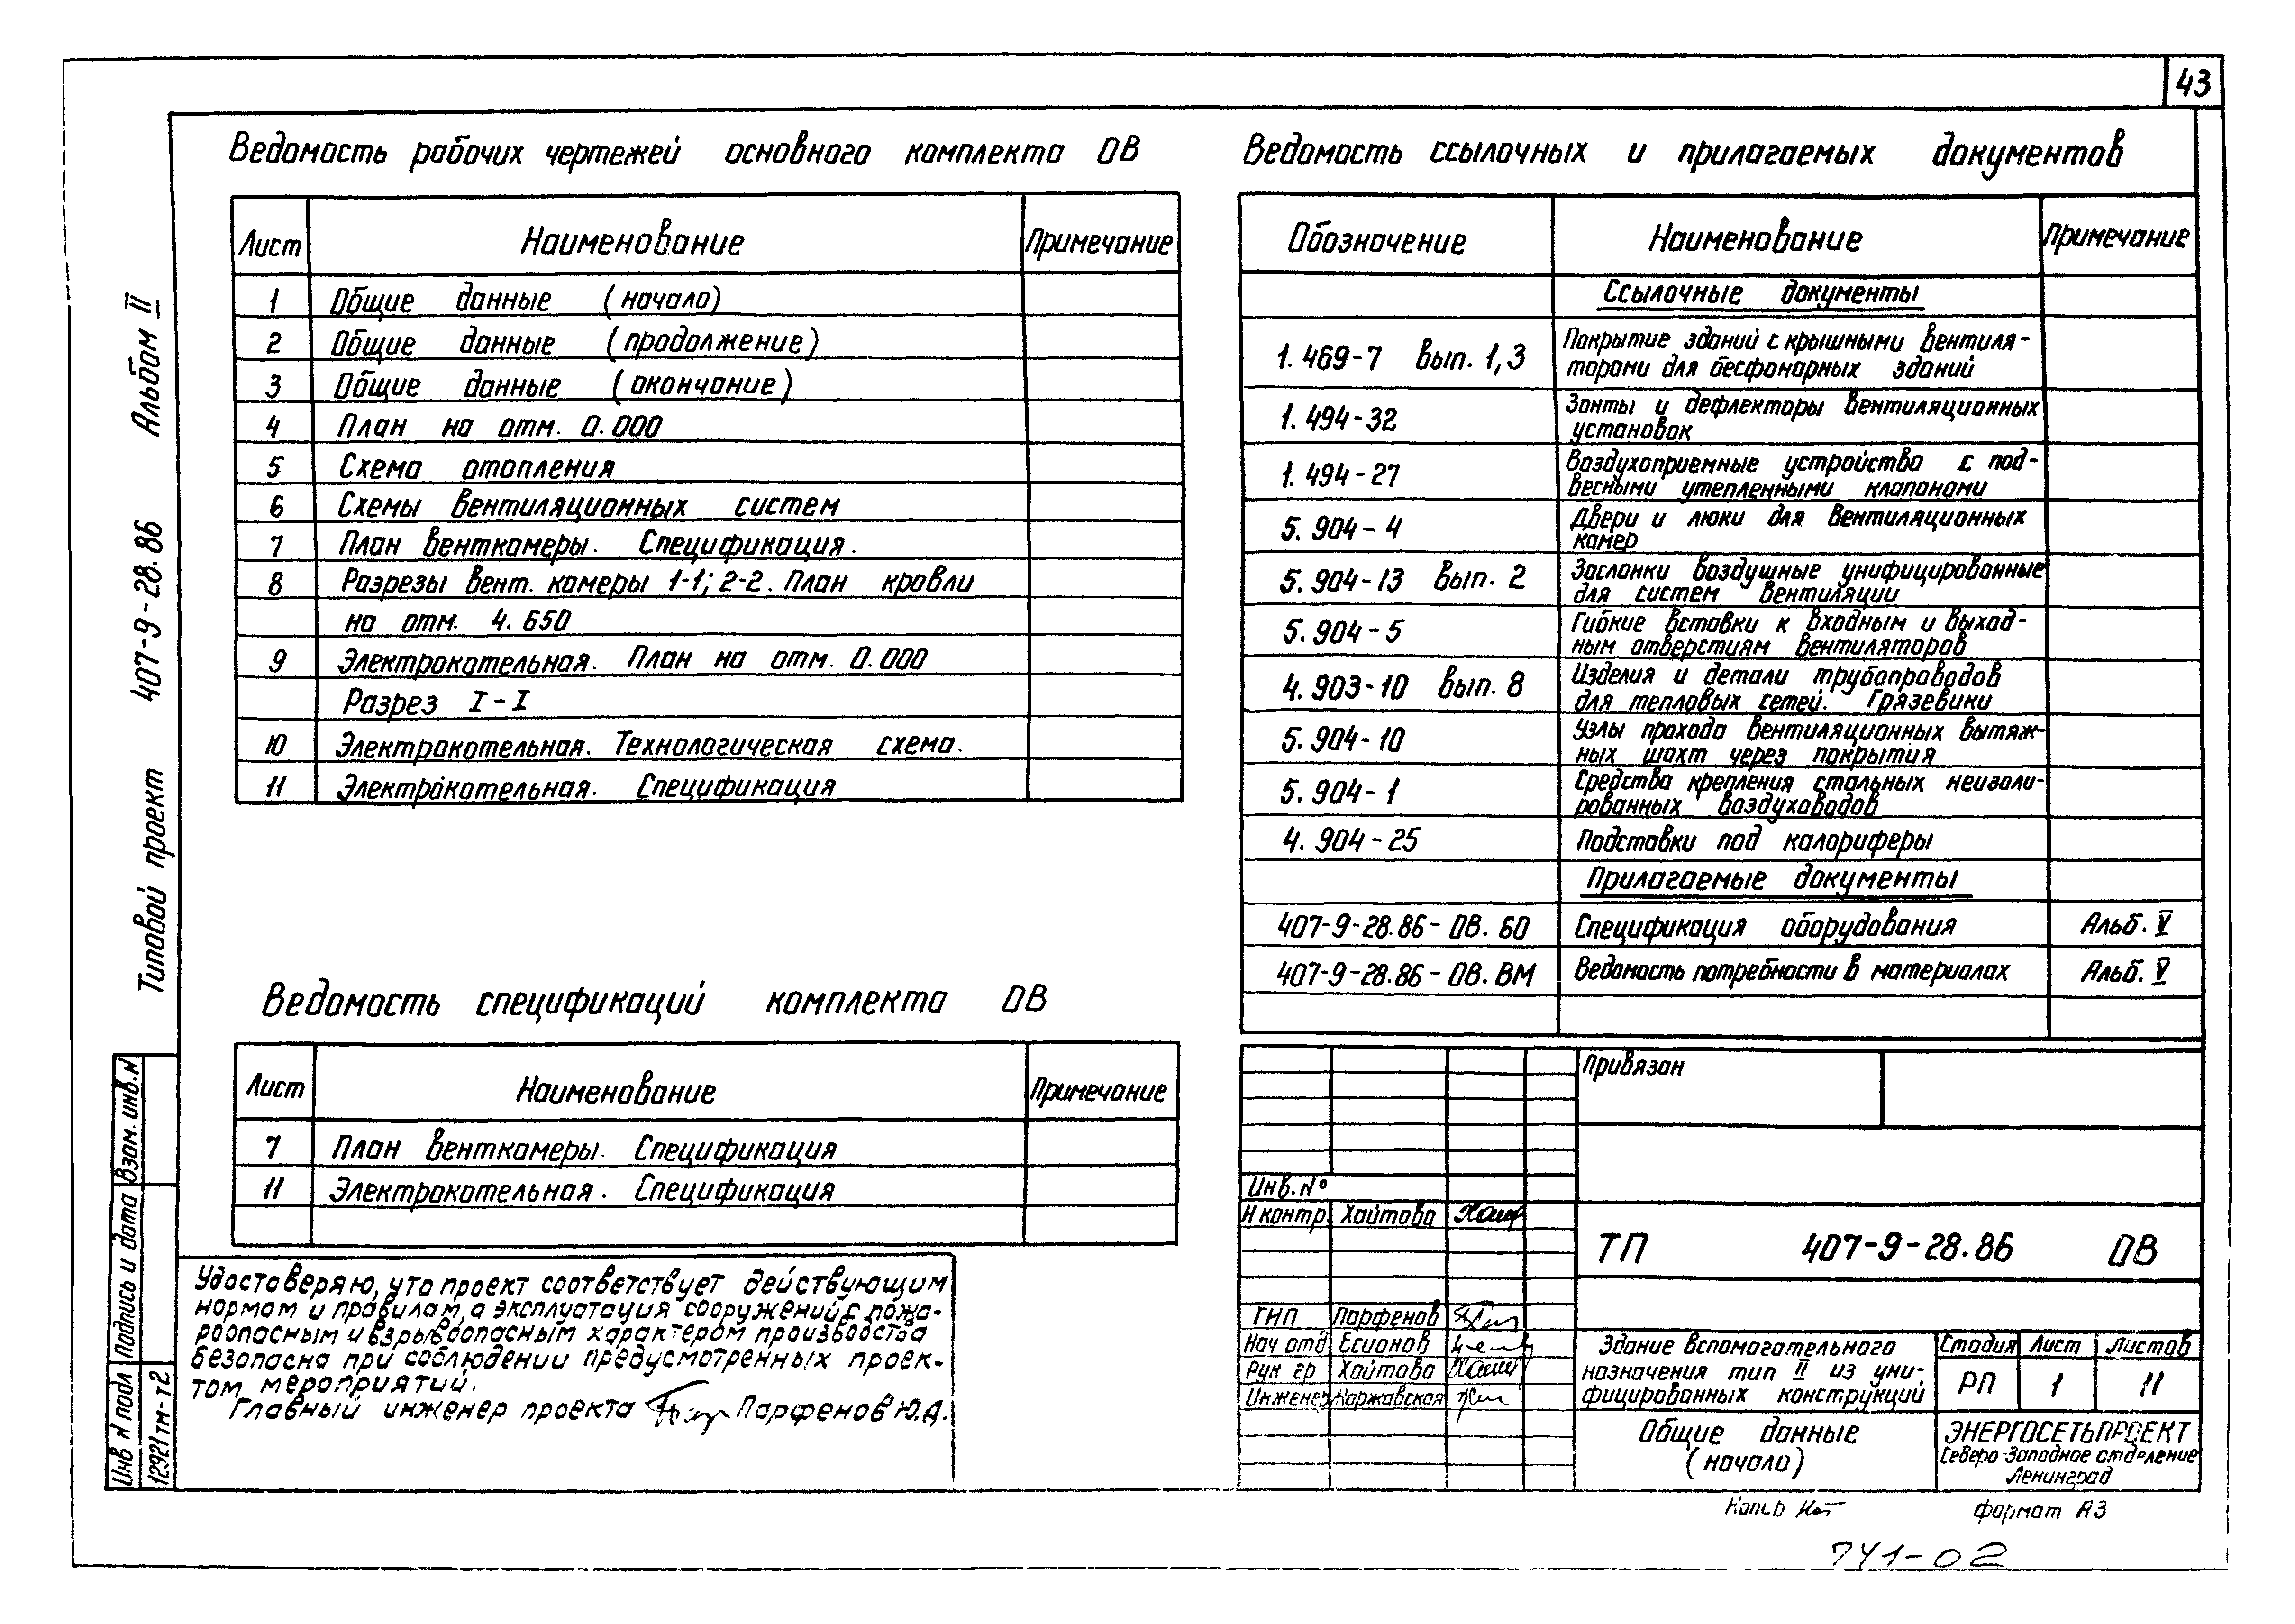 43
Ведомость рабочих чертежей основного комплекта ОВ
Лист Наименование Примечание
1 Общие данные (начало)
2 Общие данные (продолжение)
3 Общие данные (окончание)
4 План на отм. 0.000
5 Схема отопления
6 Схемы вентиляционных систем
7 План венткамеры. Спецификация.
8 Разрезы вент. камеры 1-1; 2-2. План кровли
на отм. 4.650
9 Электрокотельная. План на отм. 0.000
Разрез I-I
10 Электрокотельная. Технологическая схема.
11 Электрокотельная. Спецификация
Ведомость спецификаций комплекта ОВ
Лист Наименование Примечание
7 План венткамеры. Спецификация
11 Электрокотельная. Спецификация
Удостоверяю, что проект соответствует действующим
нормам и правилам, а эксплуатация сооружений с пожа-
роопасным и взрывоопасным характером производства
безопасна при соблюдении предусмотренных проек-
том мероприятий.
Главный инженер проекта Парфенов Ю.А.
Ведомость ссылочных и прилагаемых документов
Обозначение Наименование Примечание
Ссылочные документы
1.469-7 вып. 1,3 Покрытие зданий с крышными вентиля-
торами для бесфонарных зданий
1.494-32 Зонты и дефлекторы вентиляционных
установок
1.494-27 Воздухоприемные устройства с под-
весными утепленными клапанами
5.904-4 Двери и люки для вентиляционных
камер
5.904-13 вып. 2 Заслонки воздушные унифицированные
для систем вентиляции
5.904-5 Гибкие вставки к входным и выход-
ным отверстиям вентиляторов
4.903-10 вып. 8 Изделия и детали трубопроводов
для тепловых сетей. Грязевики
5.904-10 Узлы прохода вентиляционных вытяж-
ных шахт через покрытия
5.904-1 Средства крепления стальных неизоли-
рованных воздуховодов
4.904-25 Подставки под калориферы
Прилагаемые документы
407-9-28.86-ОВ.БО Спецификация оборудования Альб. V
407-9-28.86-ОВ.ВМ Ведомость потребности в материалах Альб. V
Привязан
Инв. №
Н контр. Хайтова
ТП 407-9-28.86 ОВ
ГИП Парфенов
Нач отд Есипонов
Рук гр Хайтова
Инженер Коржавская
Здание вспомогательного
назначения тип II из уни-
фицированных конструкций
Стадия Лист Листов
РП 1 11
Общие данные
(начало)
ЭНЕРГОСЕТЬПРОЕКТ
Северо-Западное отделение
Ленинград
формат А3
741-02
Типовой проект 407-9-28.86 Альбом II
Взам. инв. N
Подпись и дата
Инв N подл
12921тм-т2